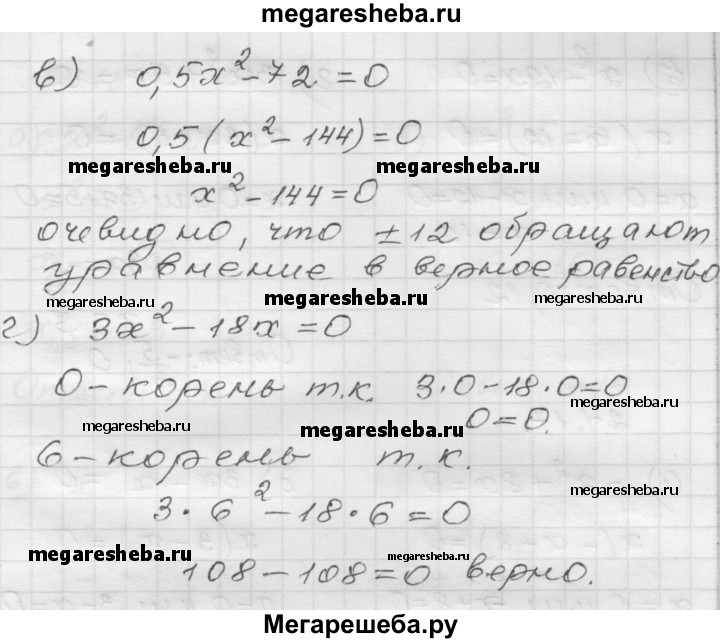 megaresheba.ru
в) 0,5x²-72=0
0,5(x²-144)=0
megaresheba.ru megaresheba.ru
x²-144=0
очевидно, что ±12 обращают
уравнение в верное равенство
megaresheba.ru megaresheba.ru megaresheba.ru
г) 3x²-18x=0
0-корень т.к. 3·0-18·0=0
megaresheba.ru
0=0.
megaresheba.ru megaresheba.ru
6-корень т.к.
megaresheba.ru
3·6²-18·6=0
megaresheba.ru megaresheba.ru
108-108=0 верно.
Мегарешеба.ру